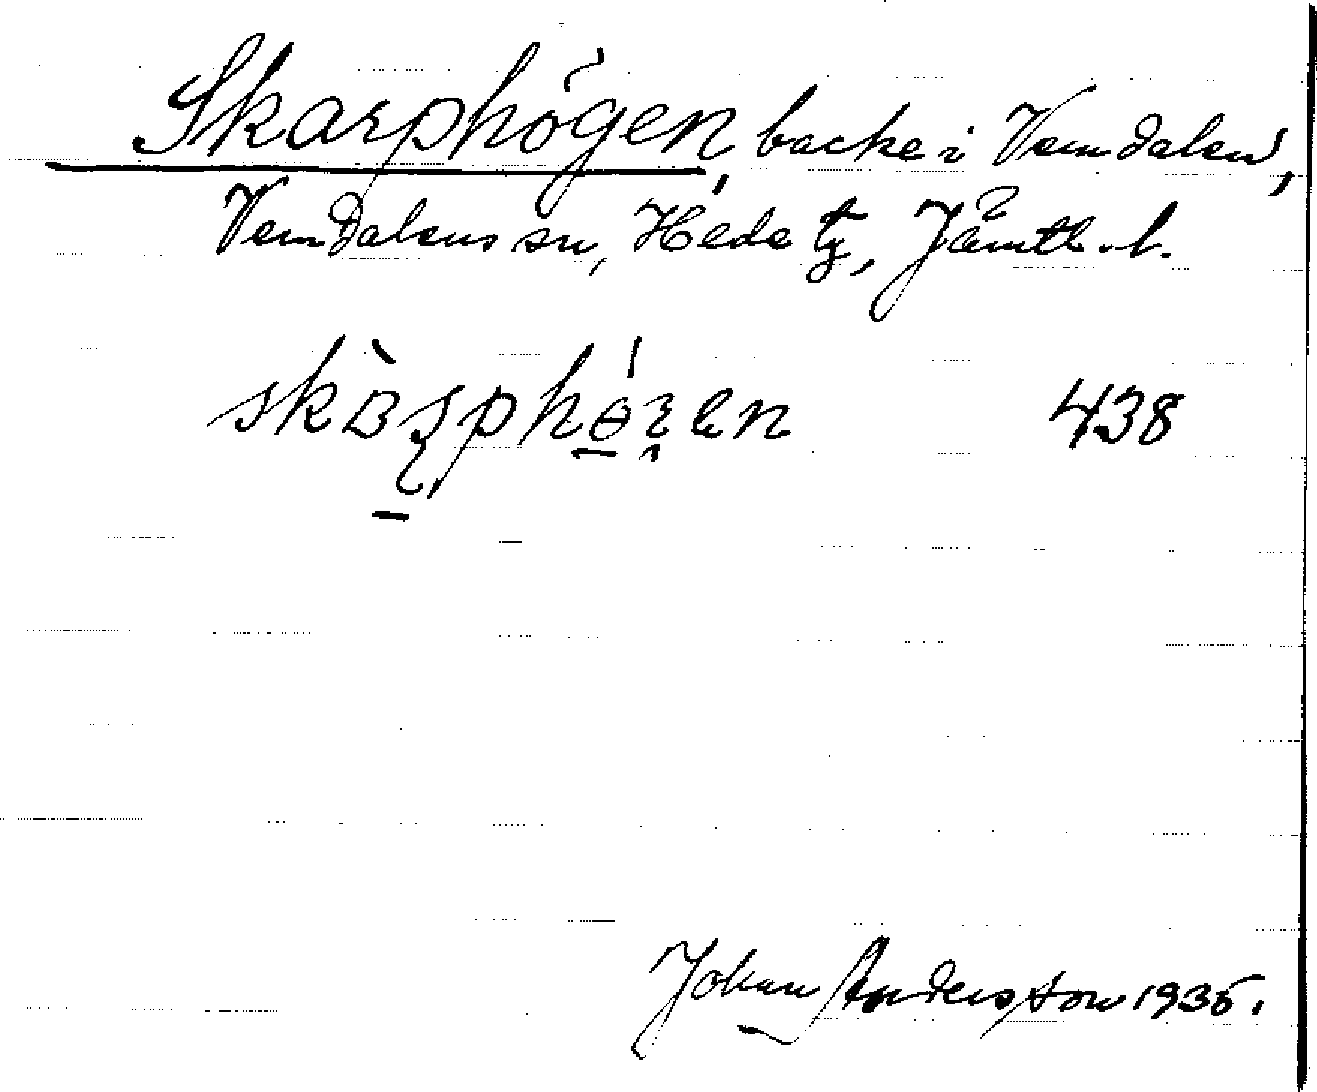 Skarphögen, backe i Vemdalen,
Vemdalens sn, Hede tg, Jämtl. l.
438
Johan Andersson 1935.